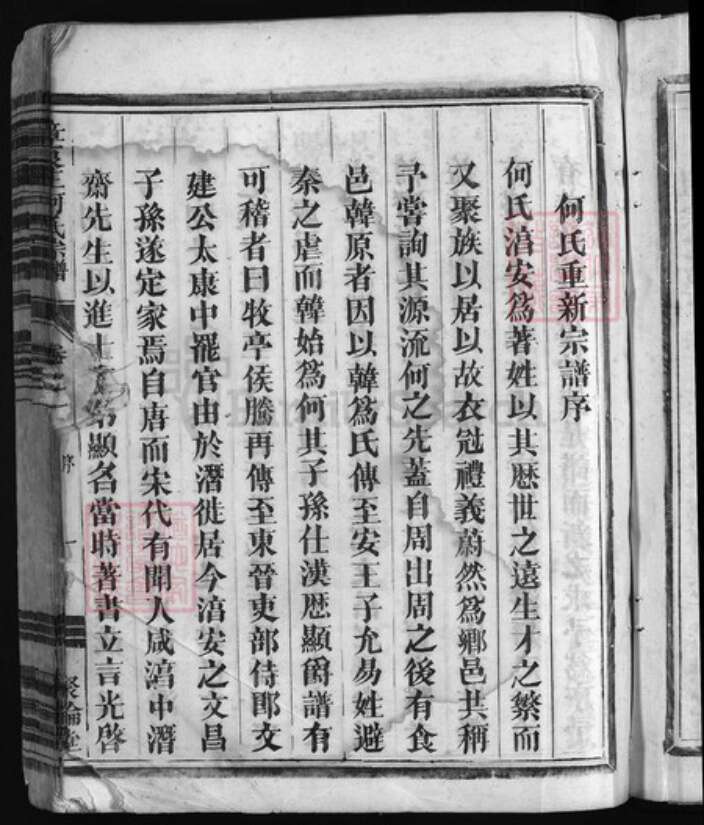 何氏重新宗譜序
何氏湻安爲著姓以其歷世之遠生才之繁而
又聚族以居以故衣冠禮義蔚然爲鄉邑共稱
予嘗詢其源流何之先蓋自周出周之後有食
邑韓原者因以韓爲氏傳至安王子允易姓避
秦之虐而韓始爲何其子孫仕漢歷顯爵譜有
可稽者曰牧亭侯騰再傳至東晉吏部侍郎文
建公太康中罷官由於潛徙居今湻安之文昌
子孫遂定家焉自唐而宋代有聞人咸湻中潛
齋先生以進士 顯名當時著書立言光啓
何氏宗譜
序
聚倫堂